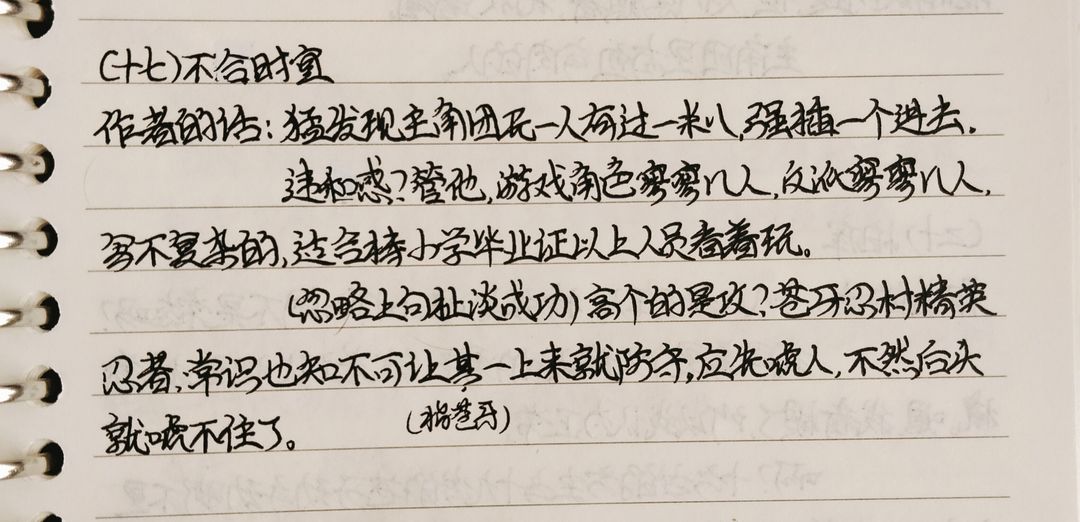 (十七)不合时宜
作者的话:猛发现主角团无一人有过一米八,强插一个进去。
违和感?管他,游戏角色寥寥几人,反派寥寥几人,
写不复杂的,适合持小学毕业证以上人员看着玩。
(忽略上句扯谈成功)高个的是攻?苍牙忍村精英
忍者,常识也知不可让其一上来就防守,应先唬人,不然后头
就唬不住了。
(指苍牙)